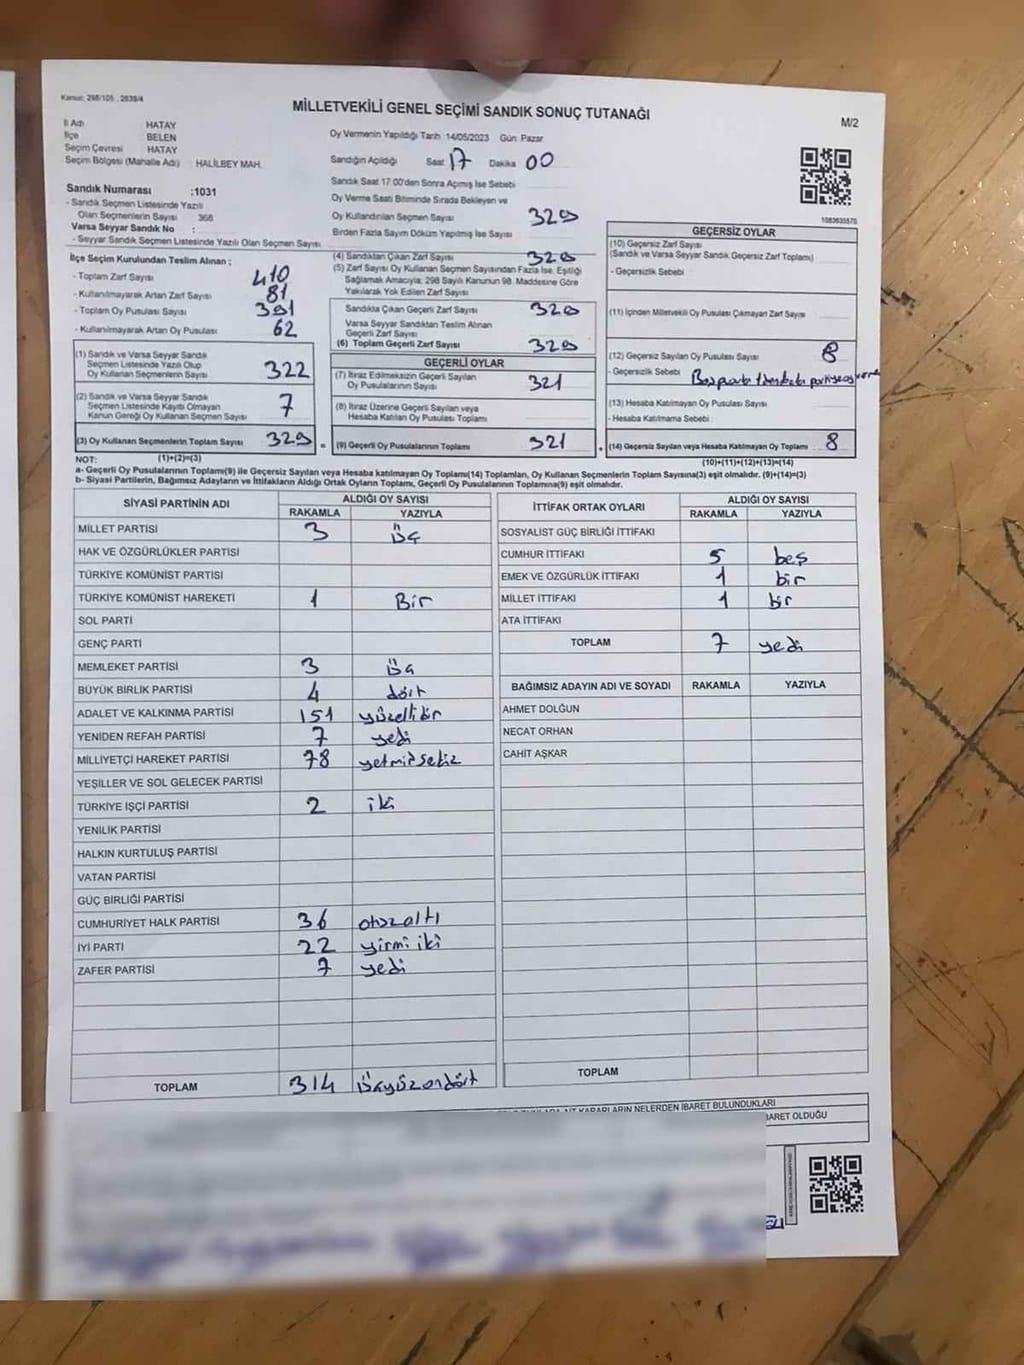 Kanun: 298/105 : 2839/4
MİLLETVEKİLİ GENEL SEÇİMİ SANDIK SONUÇ TUTANAĞI
M/2
İl Adı HATAY
İlçe BELEN
Seçim Çevresi HATAY
Seçim Bölgesi (Mahalle Adı) : HALİLBEY MAH.
Oy Vermenin Yapıldığı Tarih 14/05/2023 Gün Pazar
Sandığın Açıldığı Saat 17 Dakika 00
Sandık Saat 17.00'den Sonra Açımış İse Sebebi
Oy Verme Saati Bitiminde Sırada Bekleyen ve
Oy Kullandırılan Seçmen Sayısı 329
Birden Fazla Sayım Döküm Yapılmış İse Sayısı
Sandık Numarası :1031
- Sandık Seçmen Listesinde Yazılı
Olan Seçmenlerin Sayısı 366
Varsa Seyyar Sandık No :
- Seyyar Sandık Seçmen Listesinde Yazılı Olan Seçmen Sayısı
İlçe Seçim Kurulundan Teslim Alınan ;
- Toplam Zarf Sayısı 410
- Kullanılmayarak Artan Zarf Sayısı 81
- Toplam Oy Pusulası Sayısı 391
- Kullanılmayarak Artan Oy Pusulası 62
(1) Sandık ve Varsa Seyyar Sandık
Seçmen Listesinde Yazılı Olup
Oy Kullanan Seçmenlerin Sayısı 322
(2) Sandık ve Varsa Seyyar Sandık
Seçmen Listesinde Kayıtlı Olmayan
Kanun Gereği Oy Kullanan Seçmen Sayısı 7
(3) Oy Kullanan Seçmenlerin Toplam Sayısı 329
(1)+(2)=(3)
(4) Sandıktan Çıkan Zarf Sayısı 329
(5) Zarf Sayısı Oy Kullanan Seçmen Sayısından Fazla İse, Eşitliği
Sağlamak Amacıyla; 298 Sayılı Kanunun 98. Maddesine Göre
Yakılarak Yok Edilen Zarf Sayısı
Sandıkla Çıkan Geçerli Zarf Sayısı 329
Varsa Seyyar Sandıktan Teslim Alınan
Geçerli Zarf Sayısı
(6) Toplam Geçerli Zarf Sayısı 329
GEÇERLİ OYLAR
(7) İtiraz Edilmeksizin Geçerli Sayılan
Oy Pusulalarının Sayısı 321
(8) İtiraz Üzerine Geçerli Sayılan veya
Hesaba Katılan Oy Pusulası Toplamı
(9) Geçerli Oy Pusulalarının Toplamı 321
1083635570
GEÇERSİZ OYLAR
(10) Geçersiz Zarf Sayısı
(Sandık ve Varsa Seyyar Sandık Geçersiz Zarf Toplamı)
- Geçersizlik Sebebi
(11) İçinden Milletvekili Oy Pusulası Çıkmayan Zarf Sayısı
(12) Geçersiz Sayılan Oy Pusulası Sayısı 8
- Geçersizlik Sebebi
(13) Hesaba Katılmayan Oy Pusulası Sayısı
- Hesaba Katılmama Sebebi
(14) Geçersiz Sayılan veya Hesaba Katılmayan Oy Toplamı 8
(10)+(11)+(12)+(13)=(14)
NOT:
a- Geçerli Oy Pusulalarının Toplamı(9) ile Geçersiz Sayılan veya Hesaba katılmayan Oy Toplamı(14) Toplamları, Oy Kullanan Seçmenlerin Toplam Sayısına(3) eşit olmalıdır. (9)+(14)=(3)
b- Siyasi Partilerin, Bağımsız Adayların ve İttifakların Aldığı Ortak Oyların Toplamı, Geçerli Oy Pusulalarının Toplamına(9) eşit olmalıdır.
SİYASİ PARTİNİN ADI ALDIĞI OY SAYISI
RAKAMLA YAZIYLA
MİLLET PARTİSİ 3 üç
HAK VE ÖZGÜRLÜKLER PARTİSİ
TÜRKİYE KOMÜNİST PARTİSİ
TÜRKİYE KOMÜNİST HAREKETİ 1 Bir
SOL PARTİ
GENÇ PARTİ
MEMLEKET PARTİSİ 3 üç
BÜYÜK BİRLİK PARTİSİ 4 dört
ADALET VE KALKINMA PARTİSİ 151 yüzellibir
YENİDEN REFAH PARTİSİ 7 yedi
MİLLİYETÇİ HAREKET PARTİSİ 78 yetmişsekiz
YEŞİLLER VE SOL GELECEK PARTİSİ
TÜRKİYE İŞÇİ PARTİSİ 2 iki
YENİLİK PARTİSİ
HALKIN KURTULUŞ PARTİSİ
VATAN PARTİSİ
GÜÇ BİRLİĞİ PARTİSİ
CUMHURİYET HALK PARTİSİ 36 otuzaltı
İYİ PARTİ 22 yirmi iki
ZAFER PARTİSİ 7 yedi
TOPLAM 314 üçyüzondört
İTTİFAK ORTAK OYLARI ALDIĞI OY SAYISI
RAKAMLA YAZIYLA
SOSYALİST GÜÇ BİRLİĞİ İTTİFAKI
CUMHUR İTTİFAKI 5 beş
EMEK VE ÖZGÜRLÜK İTTİFAKI 1 bir
MİLLET İTTİFAKI 1 bir
ATA İTTİFAKI
TOPLAM 7 yedi
BAĞIMSIZ ADAYIN ADI VE SOYADI RAKAMLA YAZIYLA
AHMET DOLĞUN
NECAT ORHAN
CAHİT AŞKAR
TOPLAM
KARARLARIN NELERDEN İBARET BULUNDUKLARI
İBARET OLDUĞU